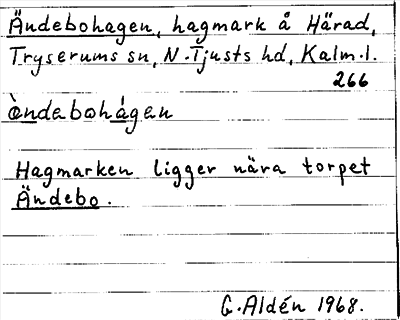 Ändebohagen, hagmark å Härad,
Tryserums sn, N. Tjusts hd, Kalm. l.
266
ὲndebohágen
Hagmarken ligger nära torpet
Ändebo.
G. Aldén 1968.